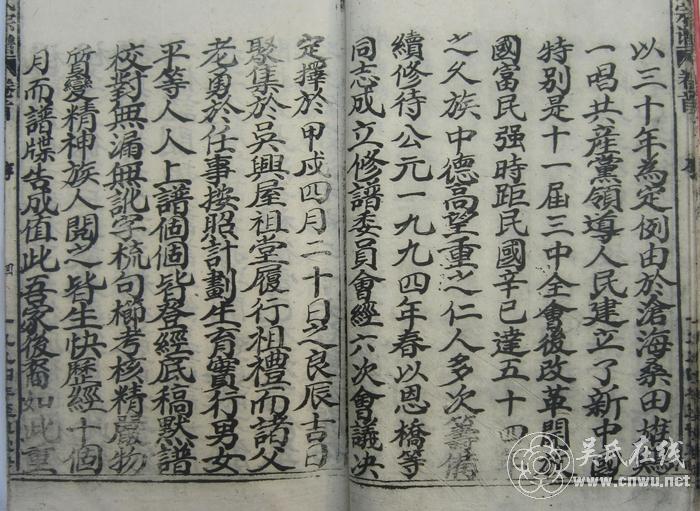 以三十年為定例由於滄海桑田雄鷄
一唱共産黨領導人民建立了新中國
特别是十一届三中全會後改革開放
國富民强時距民國辛巳達五十四
之乆族中德高望重之仁人多次籌備
續修待公元一九九四年春以恩橋等
同志成立修譜委員會經六次會議决
定擇於甲戍四月二十日之良辰吉日
聚集於吴興屋祖堂履行祖禮而諸父
老勇於任事按照計劃生育實行男女
平等人人上譜個個皆登經底稿默譜
校對無漏無訛字梳句櫛考核精嚴物
所變精神族人閲之皆生快歷經十個
月而譜牒告成值此吾家後裔如此重
吴氏在线
www.cnwu.net